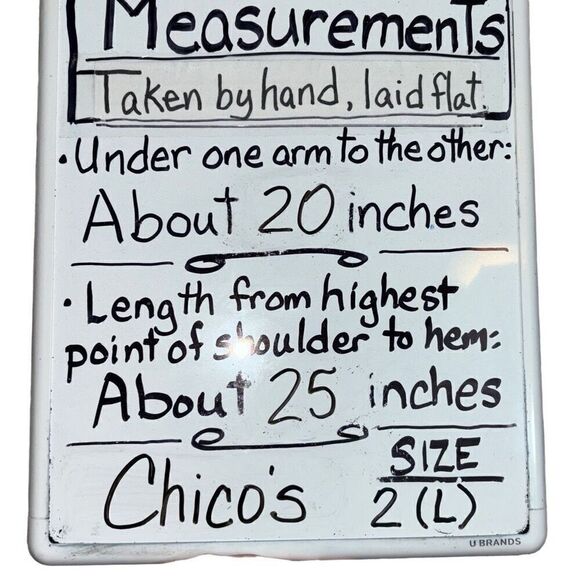 Measurements
Taken by hand, laid flat.
• Under one arm to the other:
About 20 inches
• Length from highest
point of shoulder to hem:
About 25 inches
Chico's
SIZE
2 (L)
U BRANDS